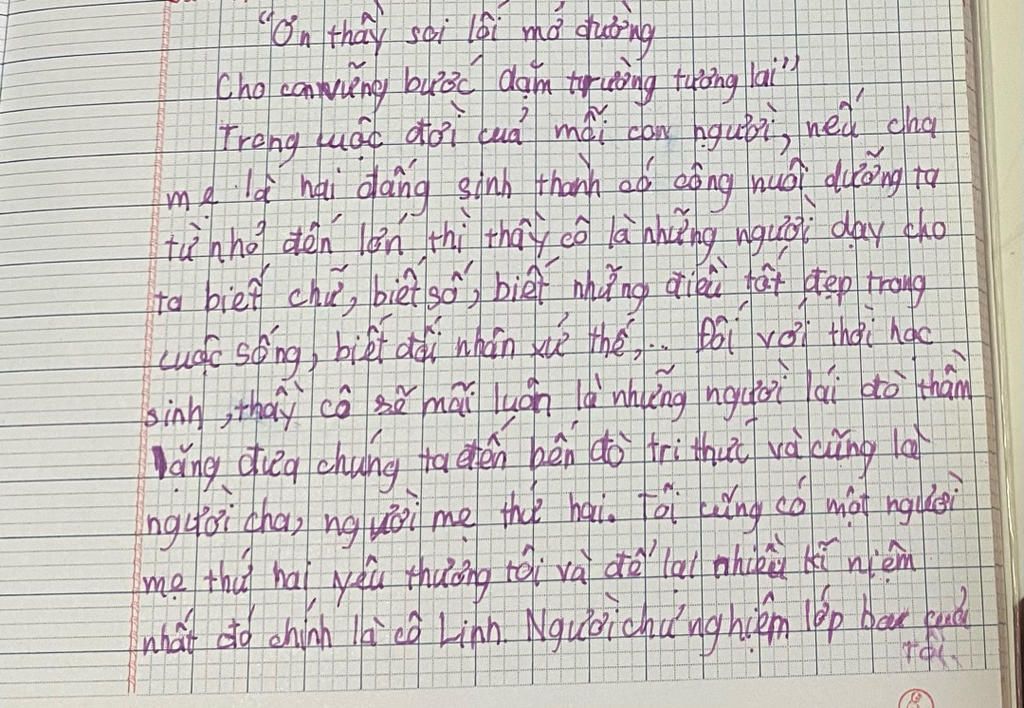 "Ơn thầy soi lối mở đường
Cho con vững bước dặm trường tương lai"
Trong cuộc đời của mỗi con người, nếu cha
mẹ là hai đấng sinh thành có công nuôi dưỡng ta
từ nhỏ đến lớn, thì thầy cô là những người dạy cho
ta biết chữ, biết số, biết những điều tốt đẹp trong
cuộc sống, biết đối nhân xử thế,... Đối với thời học
sinh, thầy cô sẽ mãi luôn là những người lái đò thầm
lặng đưa chúng ta đến bến đò tri thức và cũng là
người cha, người mẹ thứ hai. Tôi cũng có một người
mẹ thứ hai yêu thương tôi và để lại nhiều kĩ niệm
nhất đó chính là cô Linh. Người chủ nghiệm lớp ba của
tôi.